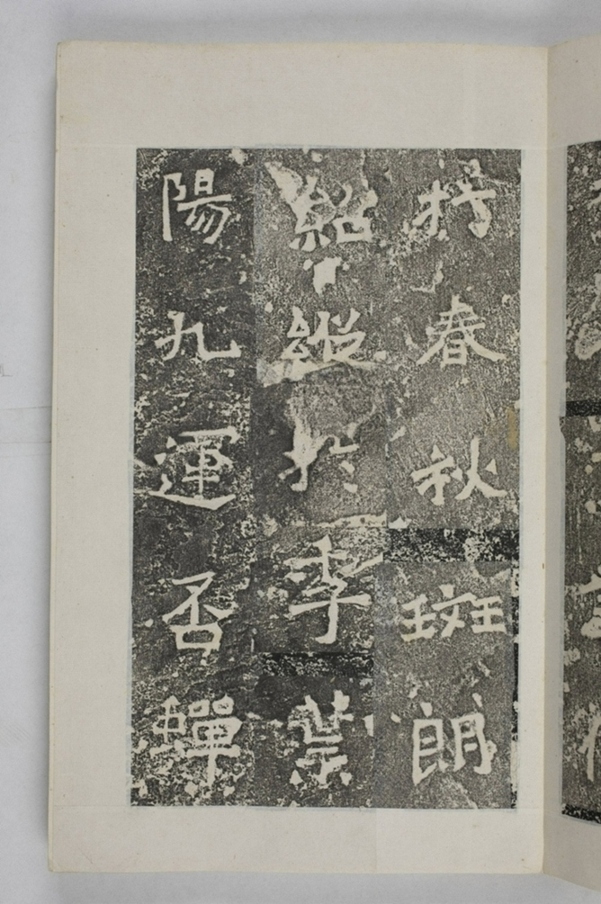 扵春秋斑朗
紹縱扵季葉
陽九運否蟬